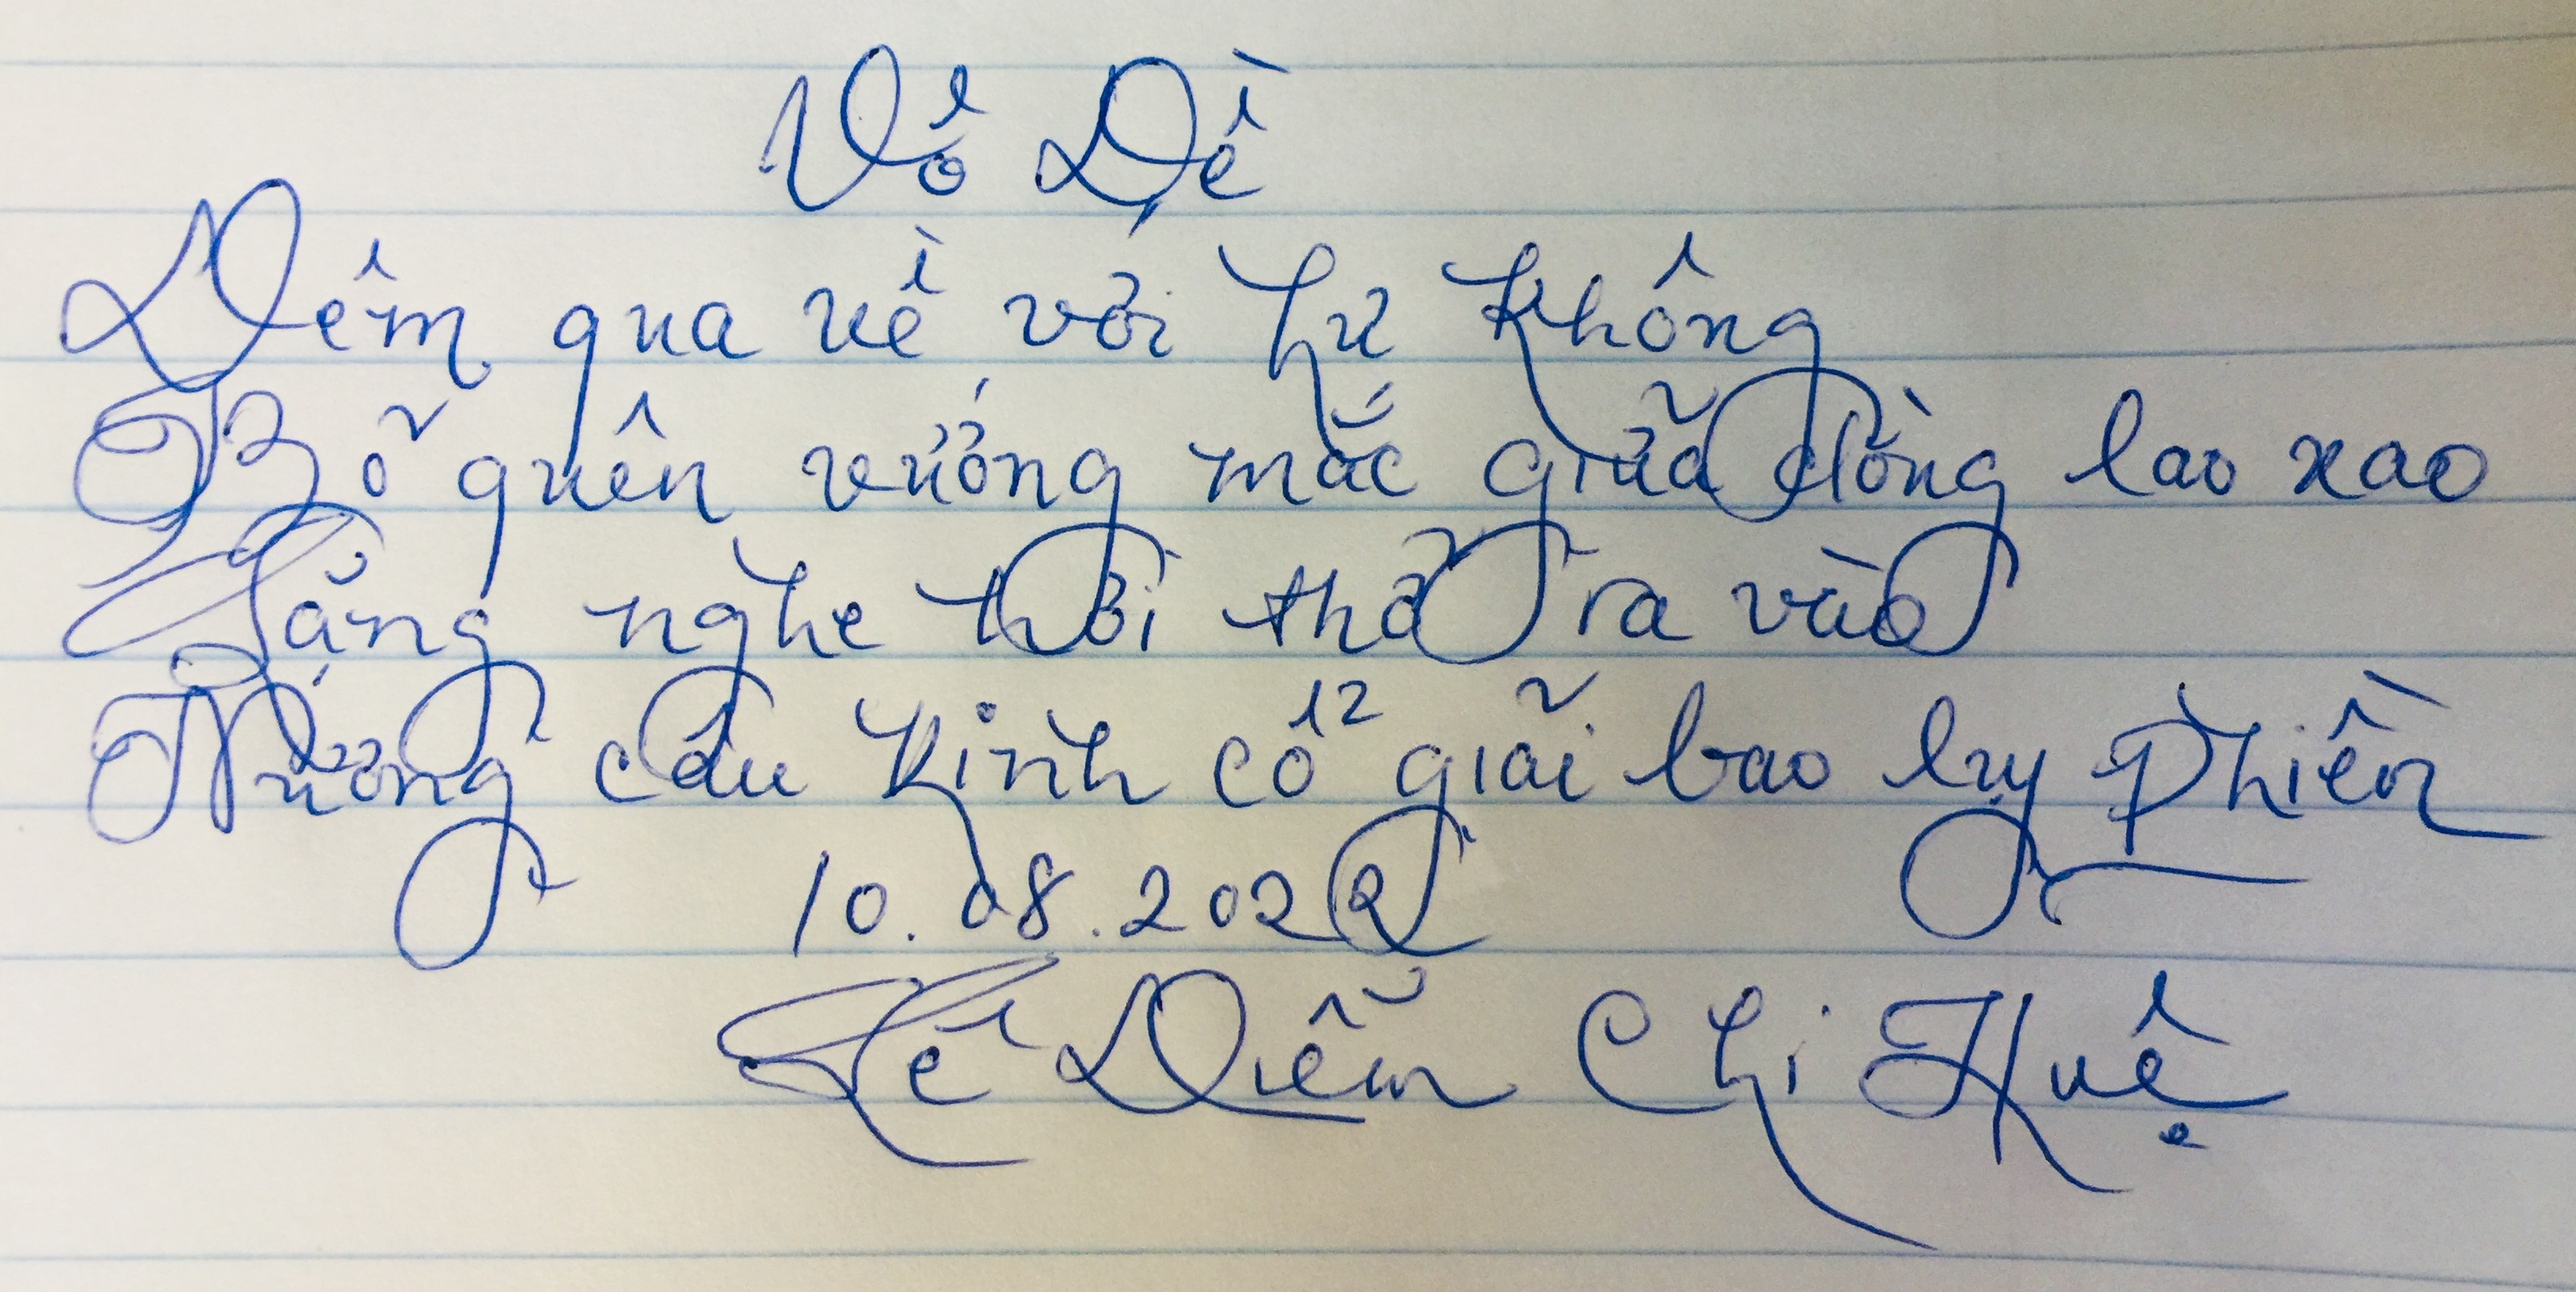 Vô Đề
Đêm qua về với hư không
Bõ quên vướng mắc giữa dòng lao xao
Lặng nghe hơi thở ra vào
Nương câu kinh cổ giãi bao lụy phiền
10.08.2022
Tê Diễn Chi Huệ